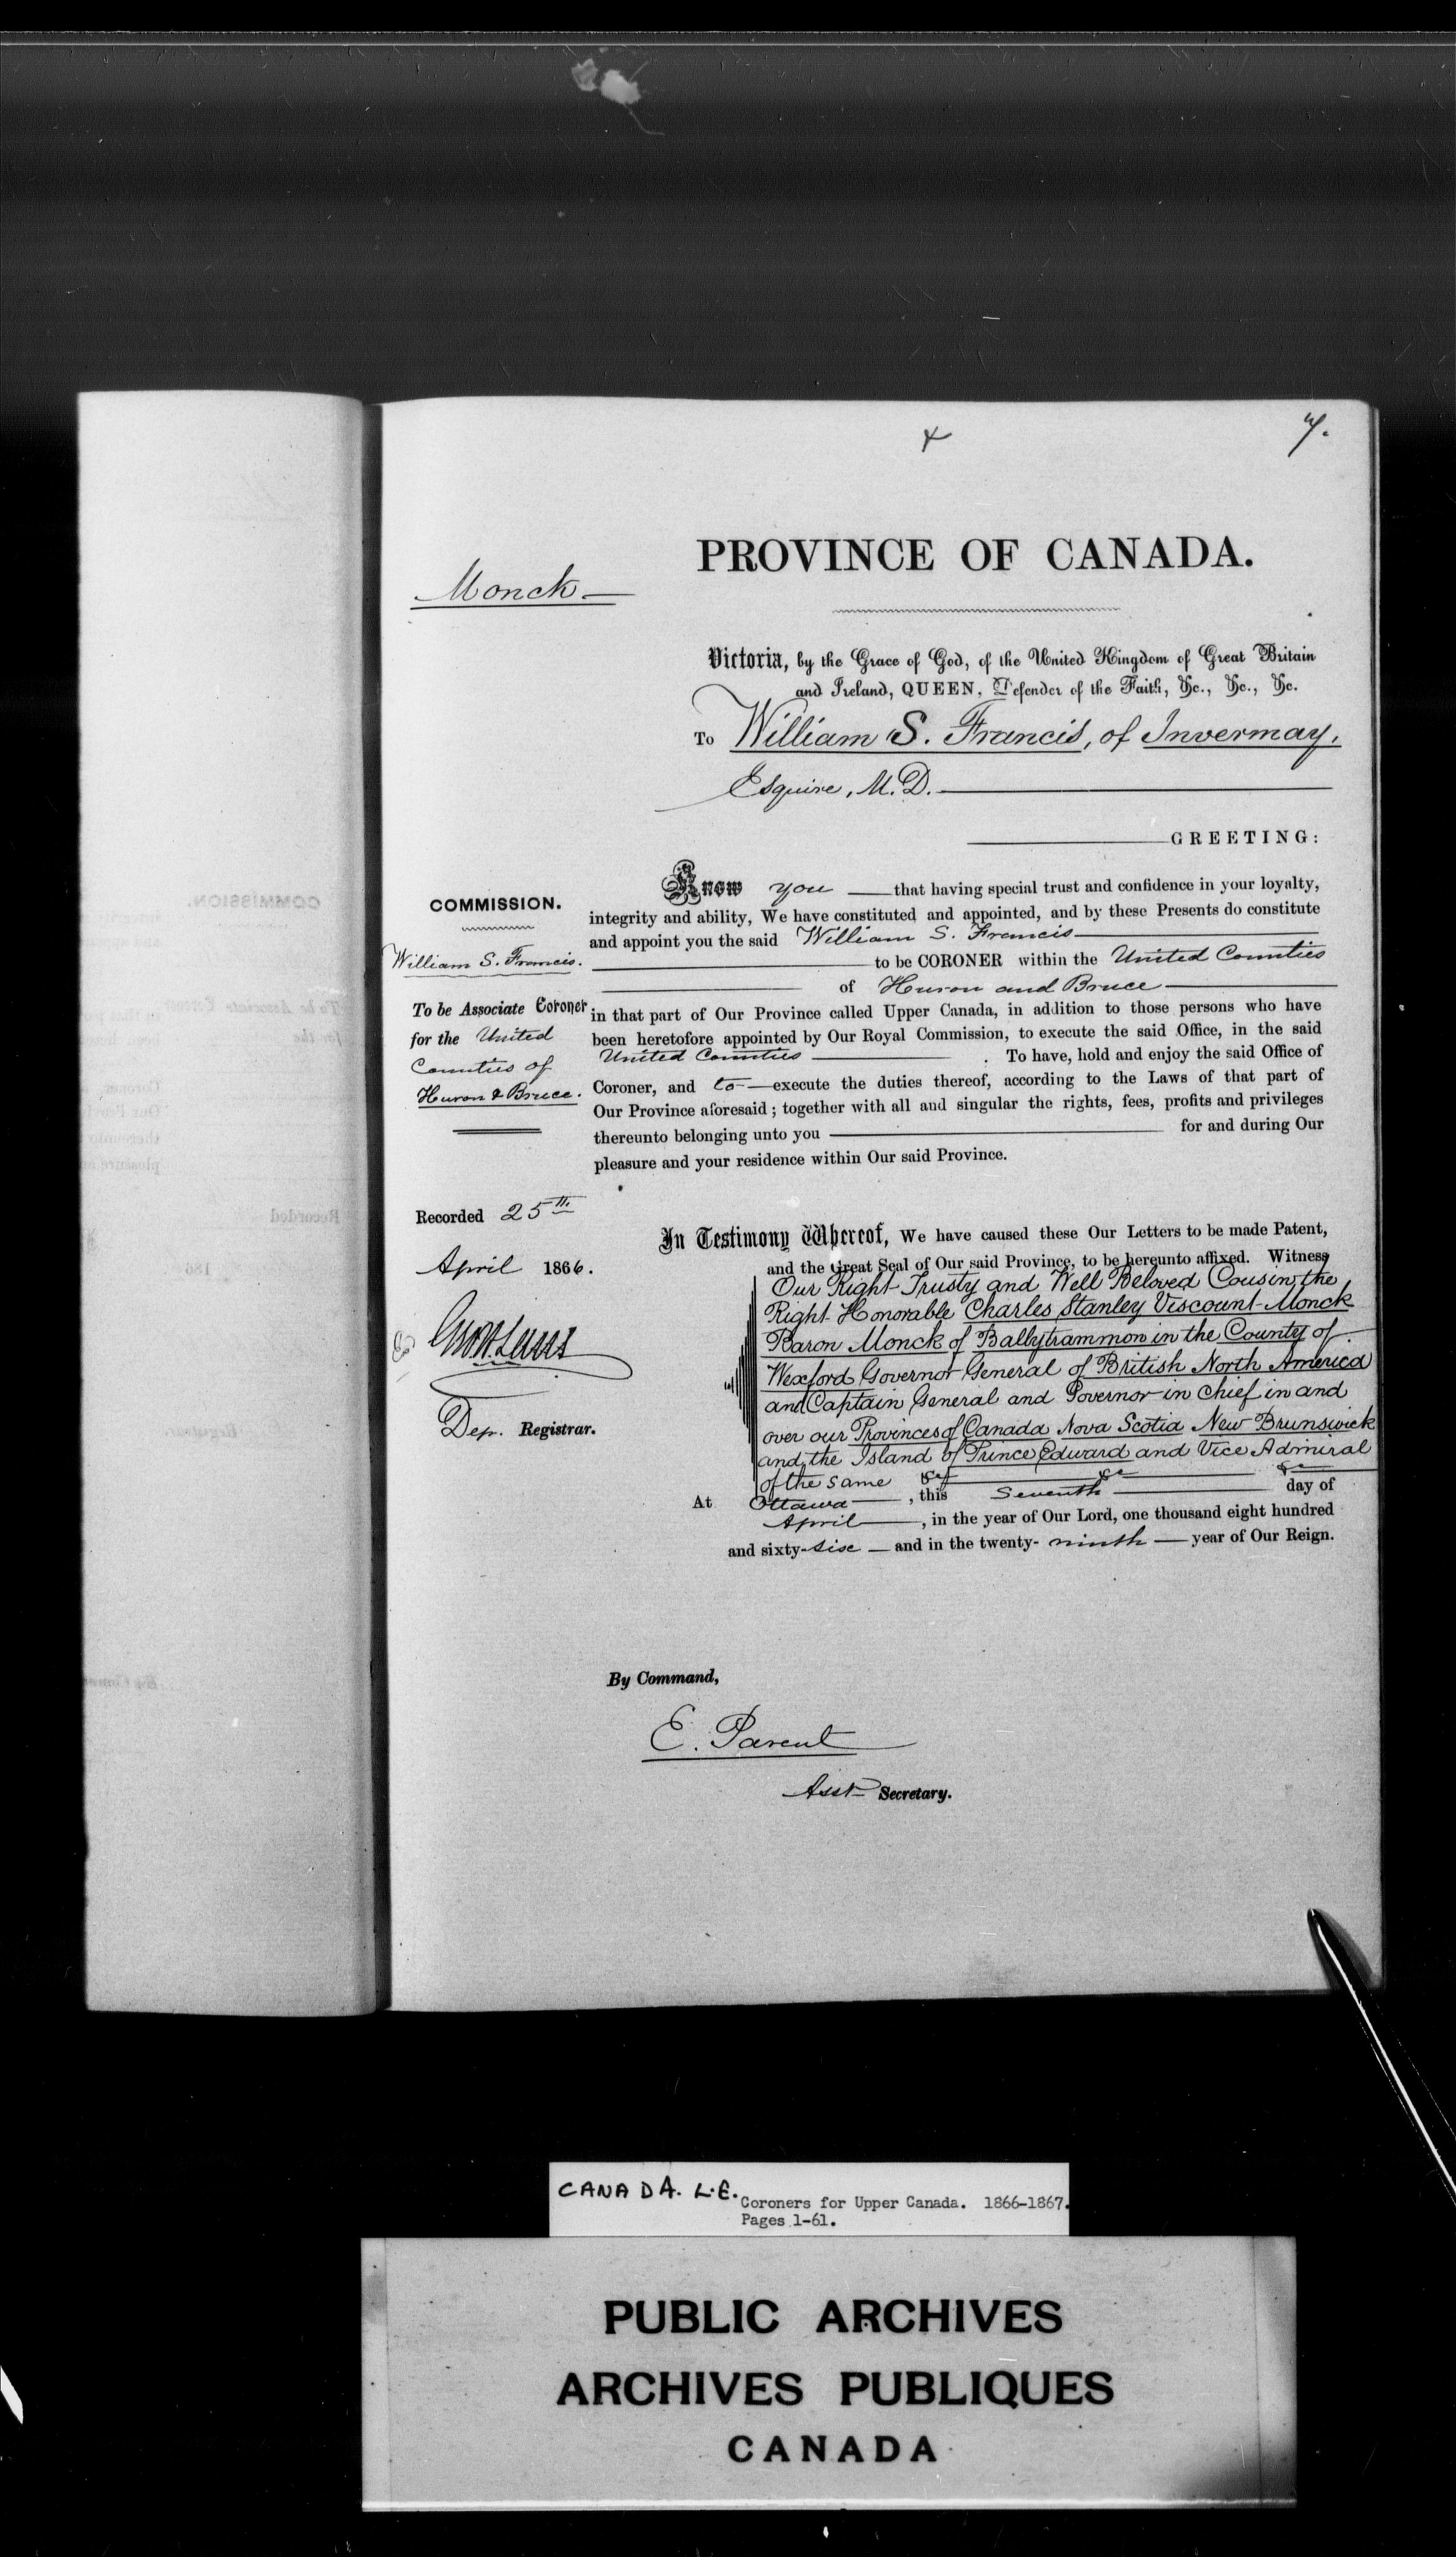 7.
PROVINCE OF CANADA.
Monck
Victoria, by the Grace of God, of the United Kingdom of Great Britain
and Ireland, QUEEN, Defender of the Faith, &c., &c., &c.
To William S. Francis, of Invermay,
Esquire, M.D.
GREETING:
Know you that having special trust and confidence in your loyalty,
integrity and ability, We have constituted and appointed, and by these Presents do constitute
and appoint you the said William S. Francis
to be CORONER within the United Counties
of Huron and Bruce
in that part of Our Province called Upper Canada, in addition to those persons who have
been heretofore appointed by Our Royal Commission, to execute the said Office, in the said
United Counties . To have, hold and enjoy the said Office of
Coroner, and to execute the duties thereof, according to the Laws of that part of
Our Province aforesaid; together with all and singular the rights, fees, profits and privileges
thereunto belonging unto you for and during Our
pleasure and your residence within Our said Province.
COMMISSION.
William S. Francis.
To be Associate Coroner
for the United
Counties of
Huron & Bruce.
Recorded 25th
April 1866.
Dep. Registrar.
In Testimony Whereof, We have caused these Our Letters to be made Patent,
and the Great Seal of Our said Province, to be hereunto affixed. Witness
Our Right Trusty and Well Beloved Cousin, the
Right Honorable Charles Stanley Viscount Monck
Baron Monck of Ballytrammon in the County of
Wexford Governor General of British North America
and Captain General and Governor in Chief in and
over our Provinces of Canada Nova Scotia New Brunswick
and the Island of Prince Edward and Vice Admiral
of the same &c &c &c
At Ottawa, this Seventh day of
April, in the year of Our Lord, one thousand eight hundred
and sixty-six and in the twenty-ninth year of Our Reign.
By Command,
E. Parent
Asst Secretary.
CANADA. L.E.
Coroners for Upper Canada. 1866-1867.
Pages 1-61.
PUBLIC ARCHIVES
ARCHIVES PUBLIQUES
CANADA